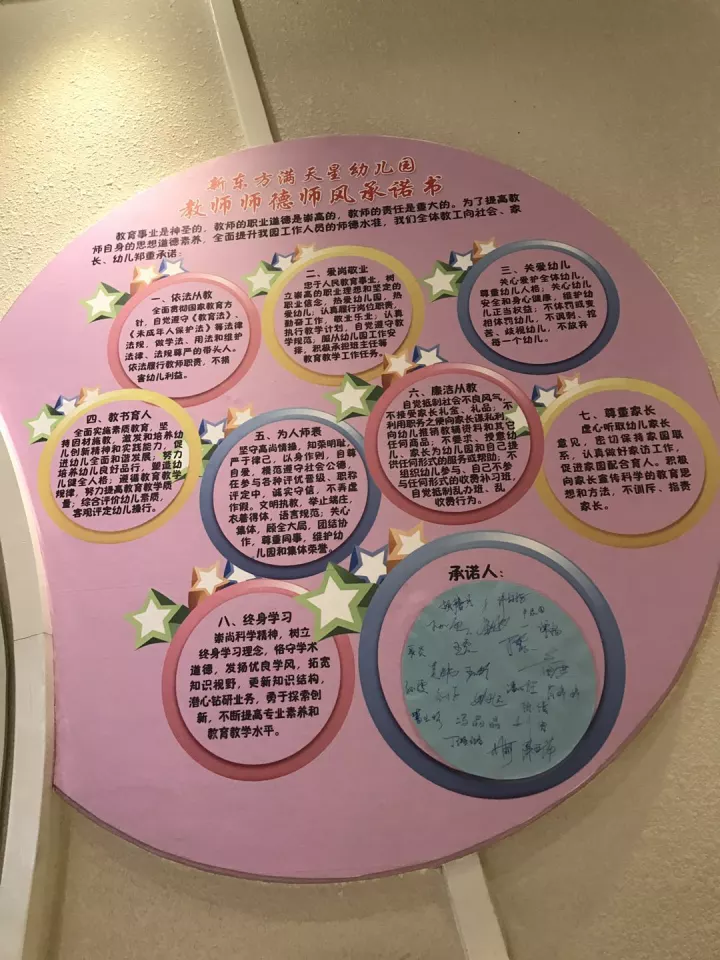 新东方满天星幼儿园
教师师德师风承诺书
教育事业是神圣的，教师的职业道德是崇高的，教师的责任是重大的。为了提高教
师自身的思想道德素养，全面提升我园工作人员的师德水准，我们全体教工向社会、家
长、幼儿郑重承诺：
一、依法从教
全面贯彻国家教育方
针，自觉遵守《教育法》、
《未成年人保护法》等法律
法规，做学法、用法和维护
法律、法规尊严的带头人。
依法履行教师职责，不损
害幼儿利益。
二、爱岗敬业
忠于人民教育事业，树
立崇高的职业理想和坚定的
职业信念，热爱幼儿园，热
爱幼儿；认真履行岗位职责，
勤奋工作，敬业乐业；认真
执行教学计划，自觉遵守教
学规范；服从幼儿园工作安
排，积极承担班主任等
教育教学工作任务。
三、关爱幼儿
关心爱护全体幼儿，
尊重幼儿人格；关心幼儿
安全和身心健康，维护幼
儿正当权益；不体罚或变
相体罚幼儿，不讽刺、挖
苦、歧视幼儿，不放弃
每一个幼儿。
四、教书育人
全面实施素质教育，坚
持因材施教，激发和培养幼
儿创新精神和实践能力，促
进幼儿全面和谐发展，努力
培养幼儿良好品行，塑造幼
儿健全人格；遵循教育教学
规律，努力提高教育教学质
量；综合评价幼儿素质，
客观评定幼儿操行。
五、为人师表
坚守高尚情操，知荣明耻，
严于律己，以身作则，自尊
自爱，模范遵守社会公德，
在参与各种评优晋级、职称
评定中，诚实守信，不弄虚
作假。文明执教，举止端庄，
衣着得体，语言规范；关心
集体，顾全大局，团结协
作，尊重同事，维护幼
儿园和集体荣誉。
六、廉洁从教
自觉抵制社会不良风气，
不接受家长礼金、礼品，不
利用职务之便向家长谋私利，
向幼儿推销教辅资料和其它
任何商品，不要求、授意幼
儿、家长为幼儿园和自己提
供任何形式的服务或帮助；不
组织幼儿参与、自己不参
与任何形式的收费补习班，
自觉抵制乱办班、乱
收费行为。
七、尊重家长
虚心听取幼儿家长
意见，密切保持家园联
系，认真做好家访工作，
促进家园配合育人。积极
向家长宣传科学的教育思
想和方法，不训斥、指责
家长。
八、终身学习
崇尚科学精神，树立
终身学习理念，恪守学术
道德，发扬优良学风，拓宽
知识视野，更新知识结构，
潜心钻研业务，勇于探索创
新，不断提高专业素养和
教育教学水平。
承诺人：